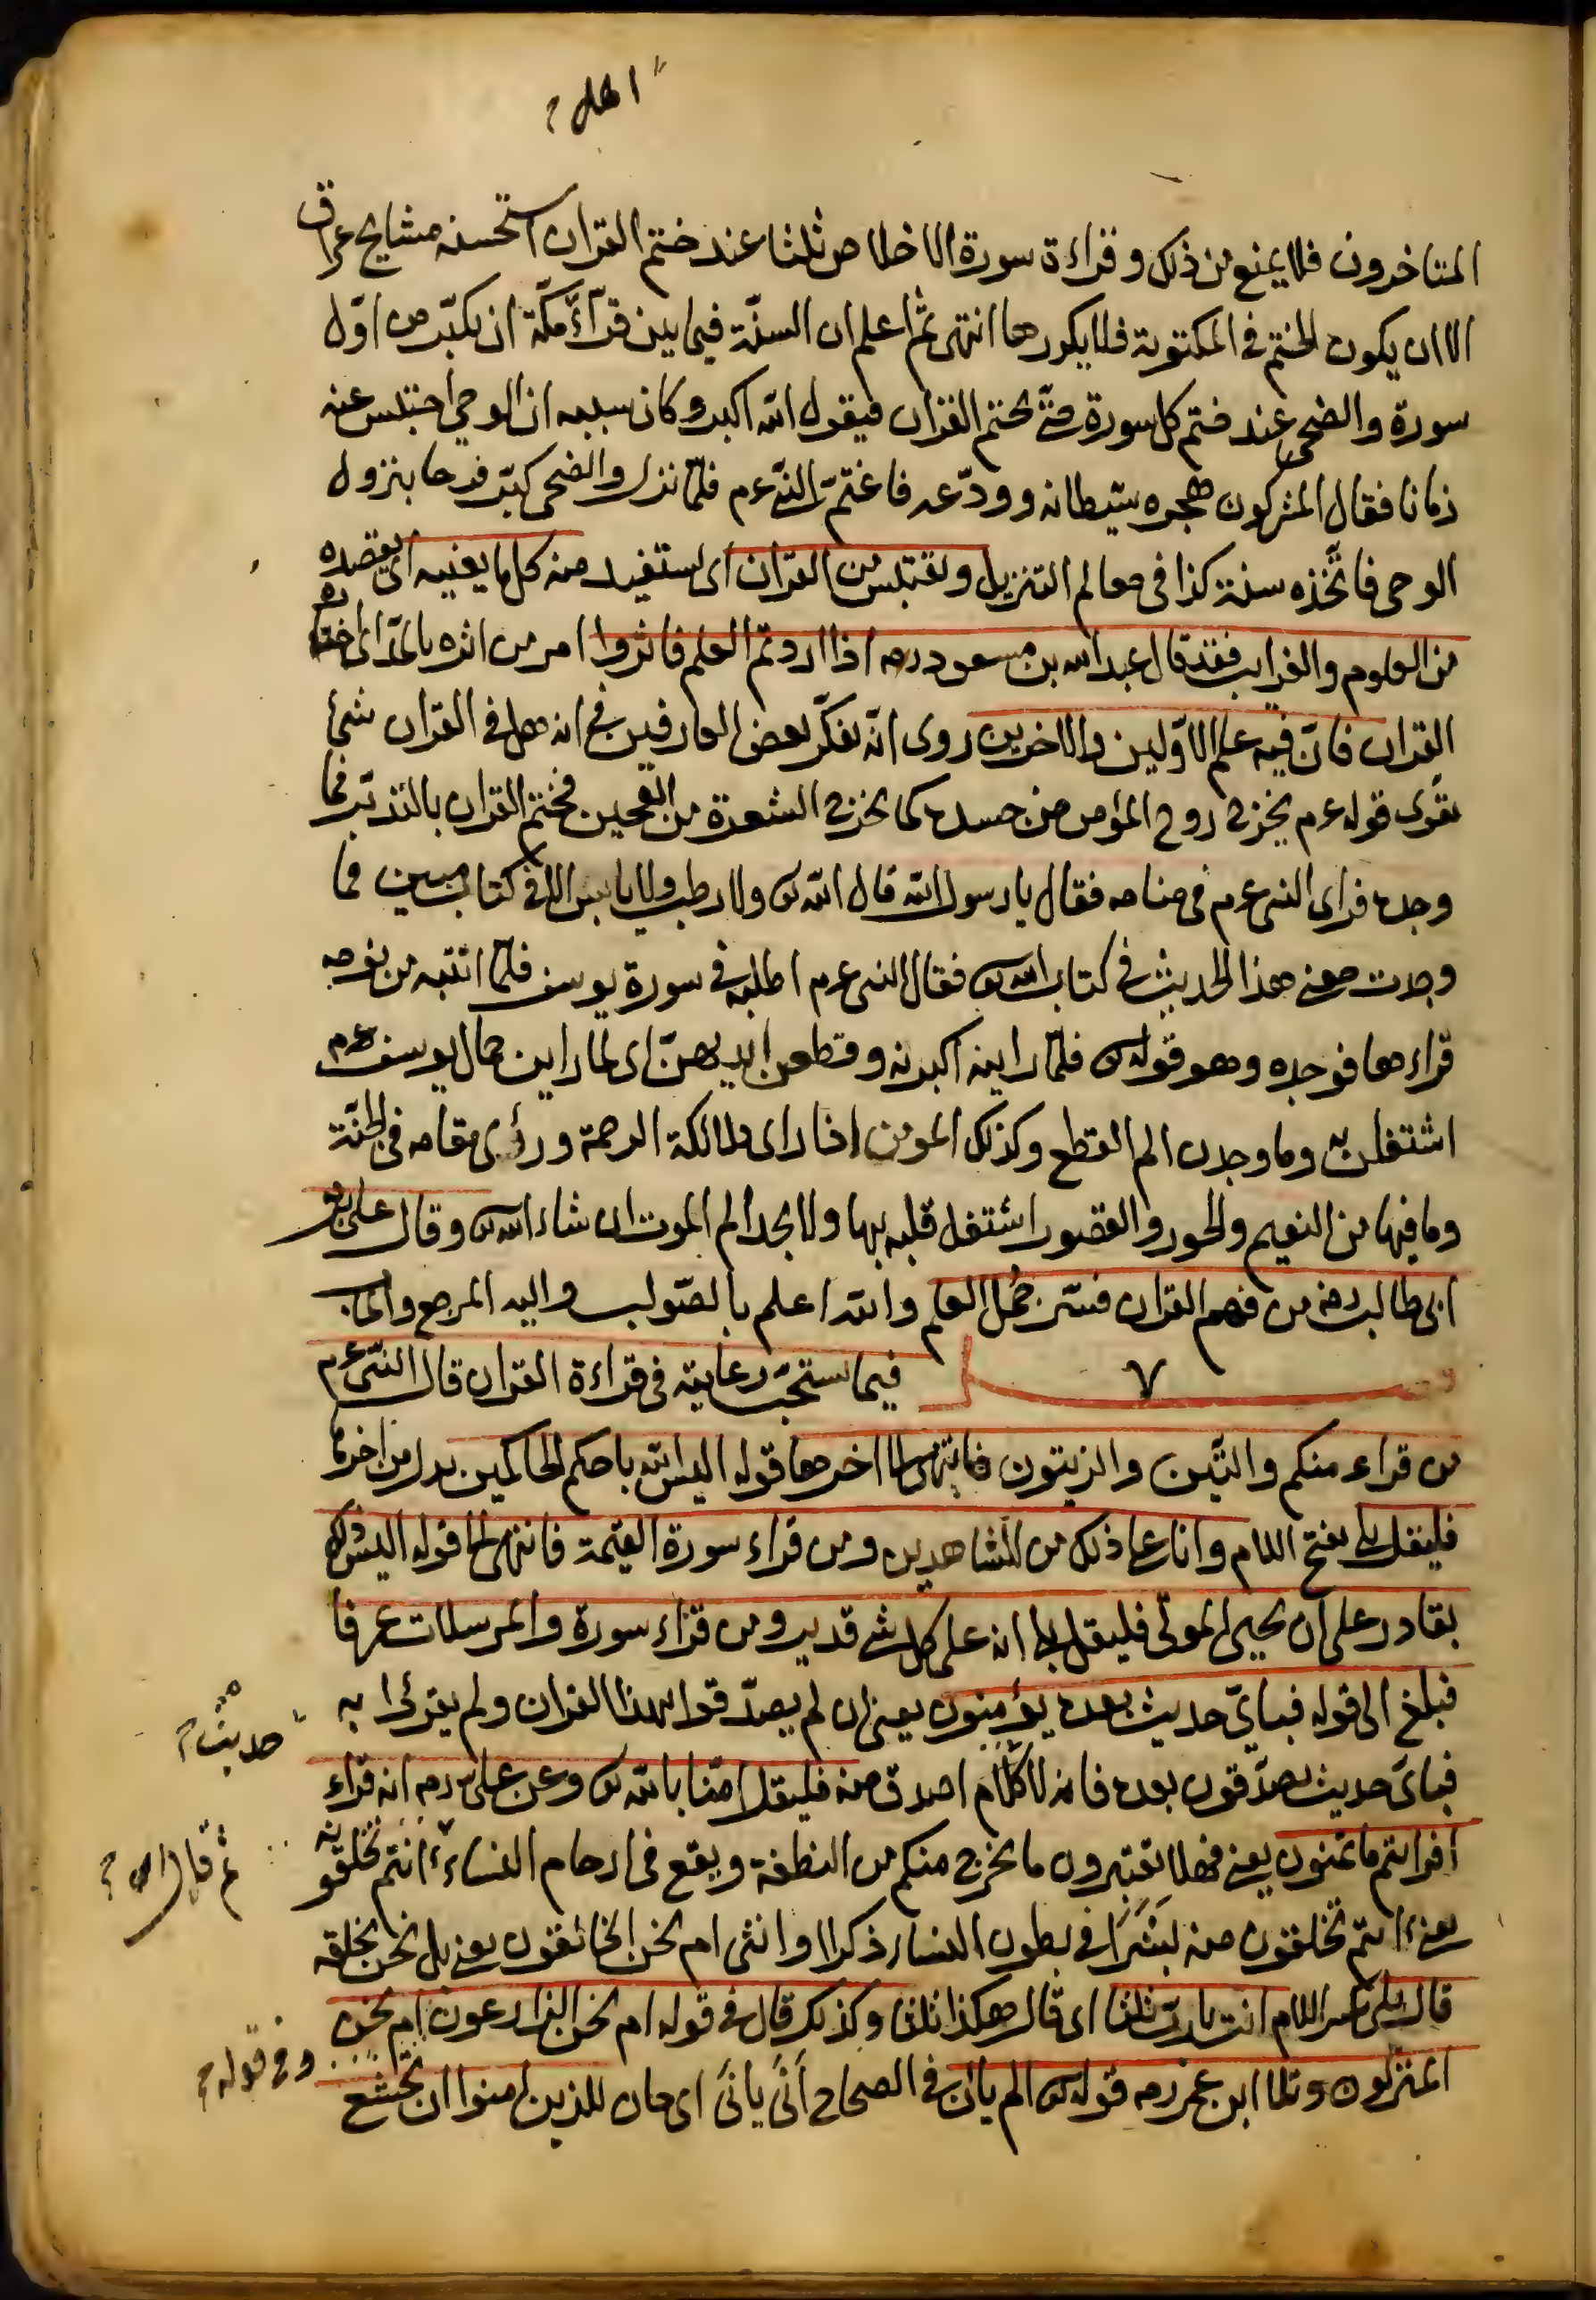 اهل
المتاخرون فلا يمنع من ذلك وقراءة سورة الاخلاص ثلثا عند ختم القران استحسنه مشايخ عراق
الا ان يكون الختم في المكتوبة فلا يكررها انتهى ثم اعلم ان السنّة فيما بين قرّاء مكّة ان يكبّر من اوّل
سورة والضحى عند ختم كل سورة حتّى يختم القران فيقول الله اكبر وكان سببه ان الوحي احتبس عنه
زمانا فقال المشركون هجره شيطانه وودّعه فاغتمّ النّبي عم فلمّا نزل والضحى كبّر فرحا بنزول
الوحي فاتّخذه سنة كذا في معالم التنزيل وتقتبس من القرآن اى يستفيد منه كل ما يعنيه اى يقصده
من العلوم والغرايب فقد قال عبد الله بن مسعود رضه اذا اردتم العلم فاثروا امر من اثره بالمدّ اى اختاره
القران فانّ فيه علم الاوّلين والاخرين روى انّه تفكّر بعض العارفين في انه هل في القران شئ
يقوّى قوله عم يخرج روح المؤمن من جسده كما يخرج الشعرة من العجين فختم القران بالتدبّر فما
وجده فراى النبي عم في منامه فقال يا رسول الله قال الله تع ولا رطب ولا يابس الا في كتاب مبين فما
وجدت معنى هذا الحديث في كتاب الله تع فقال النبي عم اطلبه في سورة يوسف فلمّا انتبه من نومه
قراءها فوجده وهو قوله تع فلمّا راينه اكبرنه وقطعن ايديهنّ اى لما راين جمال يوسف عم
اشتغلن به وما وجدن الم القطع وكذلك المومن اذا راى ملائكة الرحمة ورؤى مقامه في الجنّة
وما فيها من النعيم والحور والقصور اشتغل قلبه بها ولا يجد الم الموت ان شاء الله تع وقال على بن
ابى طالب رضه من فهم القران فسّر جُمل العلم والله اعلم بالصّواب واليه المرجع والمآب
٧ فيما يستحبّ رعايته في قراءة القران قال النّبى عم
من قراء منكم والتّين والزيتون فانتهى الى اخرها قوله اليس الله باحكم الحاكمين بدل من اخرها
فليقل بلى بفتح اللام وانا على ذلك من الشاهدين ومن قراء سورة القيمة فانتهى الى قوله اليس ذلك
بقادر على ان يحيى الموتى فليقل بلى انه على كل شئ قدير ومن قراء سورة والمرسلات عرفا
فبلغ الى قوله فباىّ حديث بعده يؤمنون يعنى ان لم يصدّقوا بهذا القران ولم يقرئوا به
حديث
فباىّ حديث يصدّقون بعده فانه لا كلام اصدق منه فليقل امنّا بالله تع وعن على رضه انه قراء
افرايتم ما تمنون يعنى فهلا تعتبرون ما يخرج منكم من النطفة ويقع في ارحام النساء ءانتم تخلقونه
ثم قال
يعنى ءانتم تخلقون منه بَشَرًا في بطون النساء ذكرا وانثى ام نحن الخالقون يعنى بل نحن نخلقه
قال بلى بكسر اللام انت يا ربّ ثلثا اى قال هكذا ثلثا وكذلك قال في قوله ام نحن الزارعون ام نحن
وفي قوله
المنزلون وتلا ابن عمر رضه قوله تع الم يان في الصحاح أنَى يأنَى اى حان للذين امنوا ان تخشع